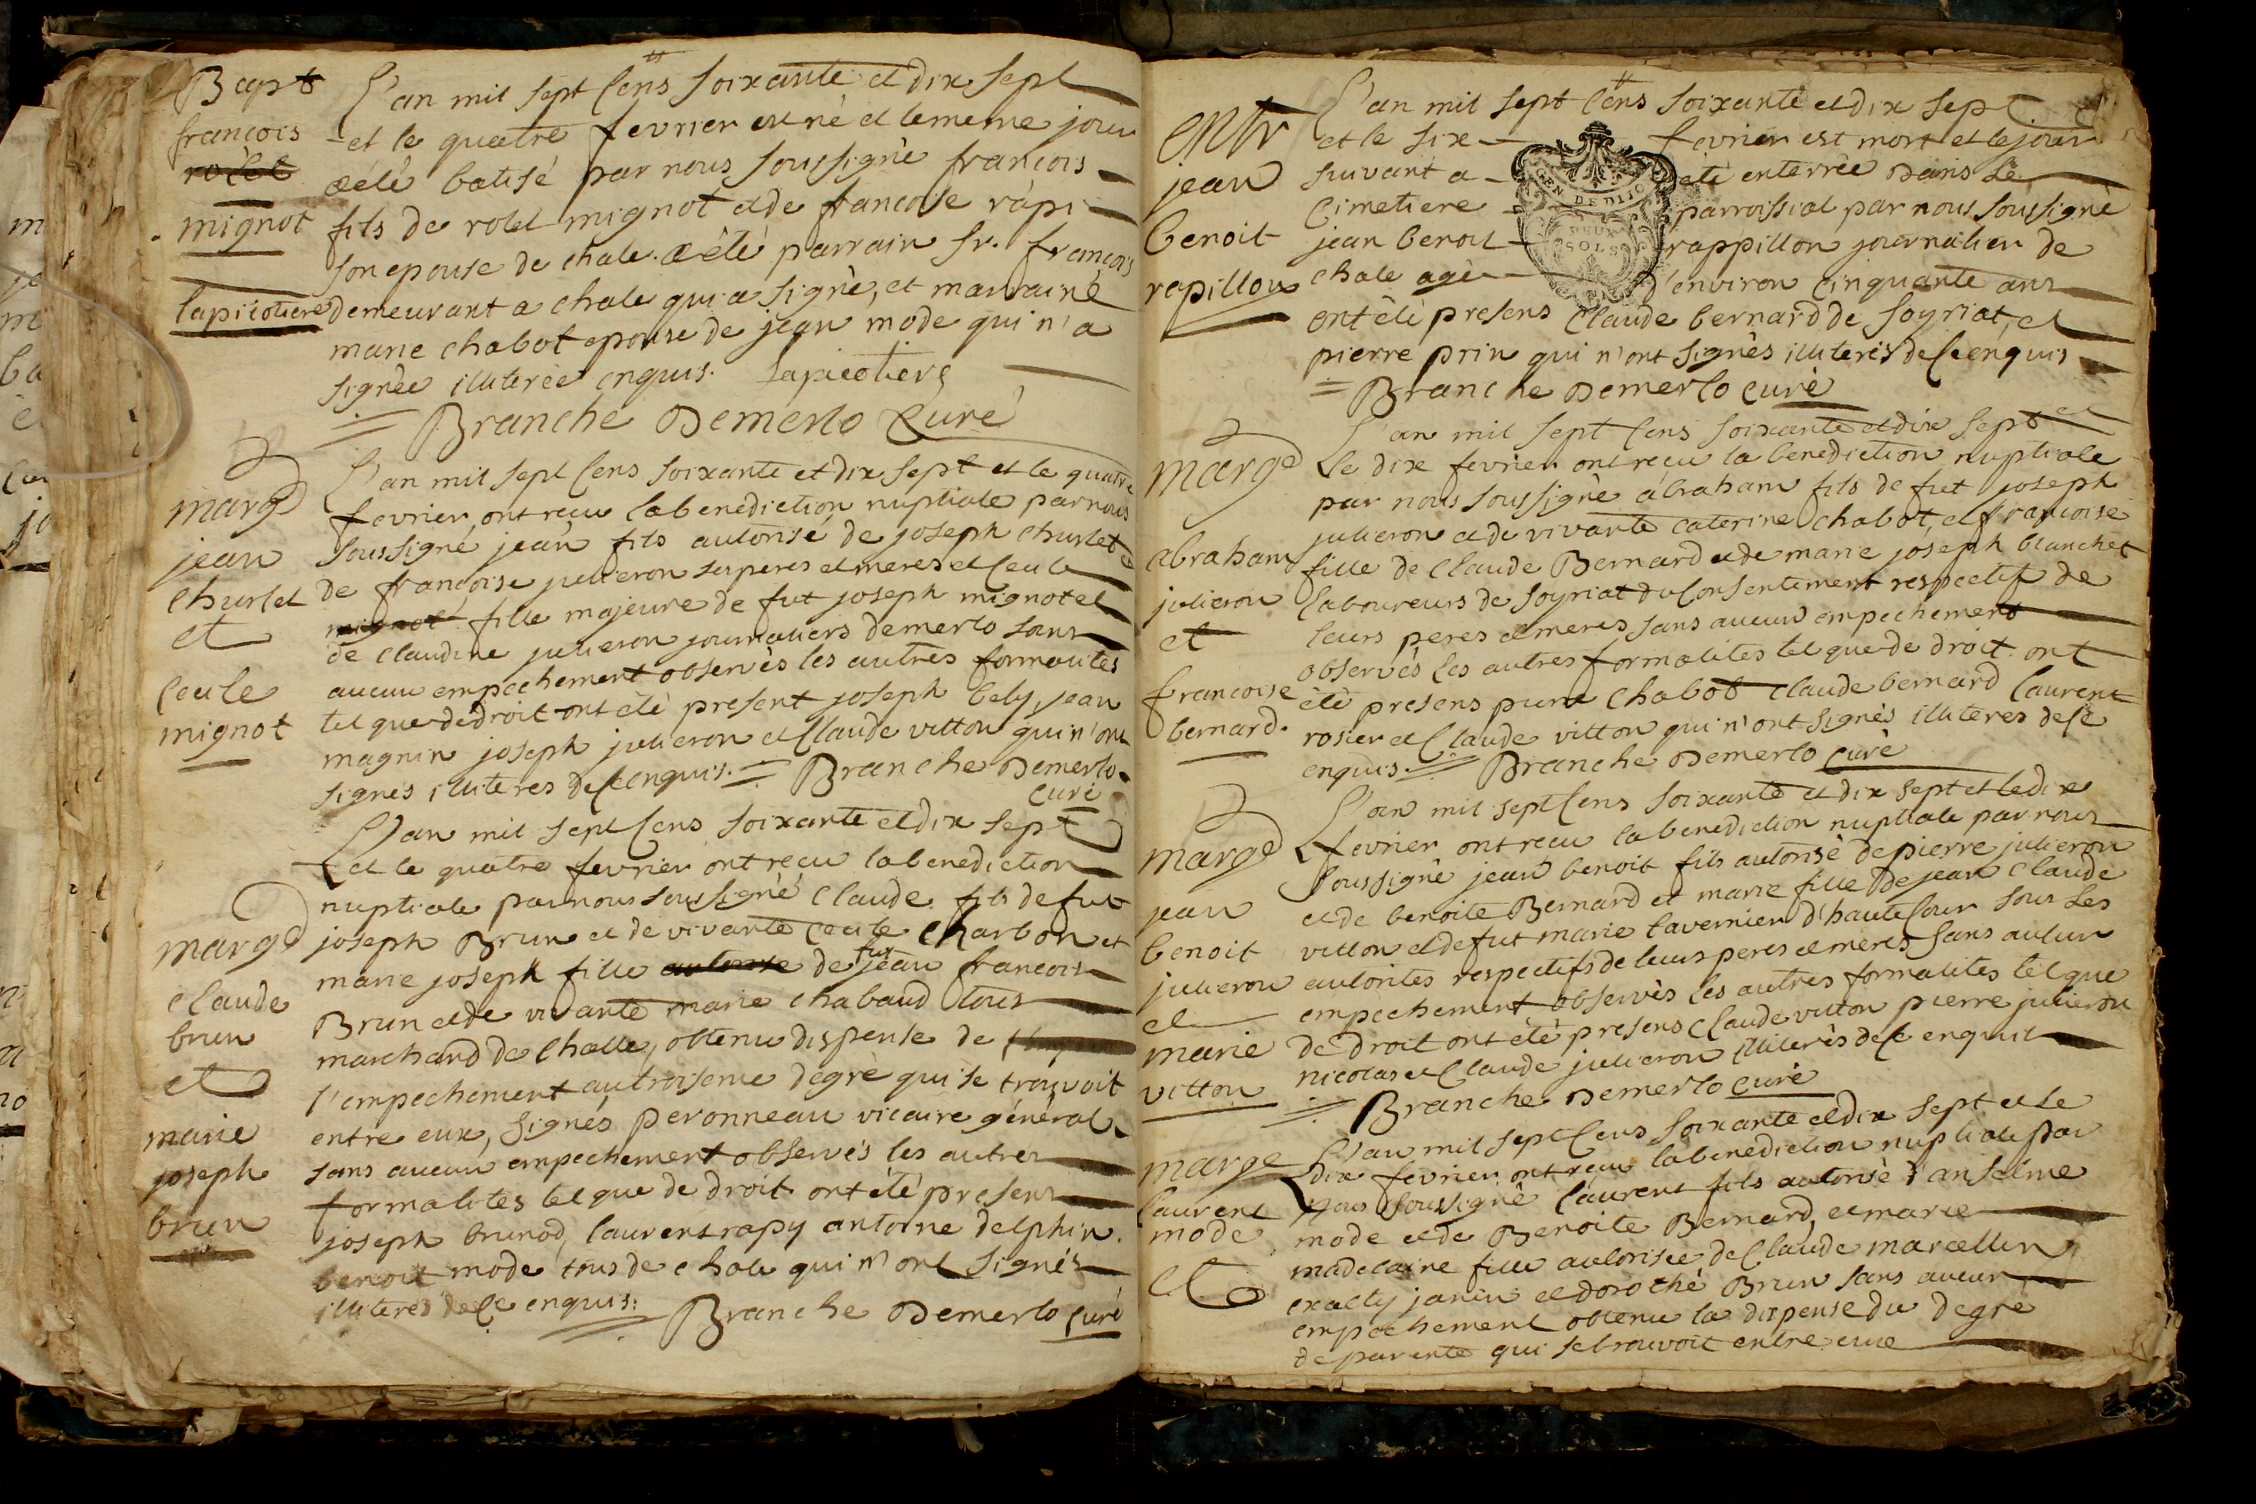 Bapt
françois
rolet
mignot
lapicotiere
L'an mil sept cens soixante et dix sept
et le quatre fevrier est né et le meme jour
a été batisé par nous soussigné françois
fils de rolet mignot et de francoise rapi
son epouse de chale. a été parrain sr. françois
demeurant a chale qui a signé, et marraine
marie chabot epouse de jean mode qui n'a
signée illiterée enquis. Lapicotiere
Branche Demerlo Curé
marge
jean
churlet
et
cecile
mignot
L'an mil sept cens soixante et dix sept et le quatre
fevrier ont reçu la benediction nuptiale par nous
soussigné jean fils autorisé de joseph churlet et
de françoise julieron ses peres et meres et cecile
mignot fille majeure de fut joseph mignot et
de claudine julieron journaliers demerlo sans
aucun empechement observés les autres formalites
tel que de droit ont été present joseph bely, jean
magnin joseph julieron et Claude vitton qui n'ont
signés illiteres de ce enquis. Branche Demerlo
curé
marge
claude
brun
et
marie
joseph
brun
L'an mil sept cens soixante et dix sept
et le quatre fevrier ont reçu la benediction
nuptiale par nous soussigné Claude fils de fut
joseph Brun et de vivante cecile charbon et
marie joseph fille autorise de fut jean francois
Brun et de vivante marie chabaud tous
marchand de challe, obtenu dispense de
l'empechement au troiseme degré qui se trouvoit
entre eux, signés peronneau vicaire général
sans aucun empechement observés les autres
formalites tel que de droit ont été presens
joseph brunod, laurens rapy antoine delphin.
benoit mode tous de chale qui n'ont signés
illiteres de ce enquis: Branche Demerlo curé
entr
jean
benoit
rapillon
L'an mil sept cens soixante et dix sept
et le six fevrier est mort et le jour
suivant a eté enterrée dans le
Cimetiere parroissial par nous soussigné
jean benoit rappillon journalier de
chale agè d'environ cinquante ans
ont été presens Claude bernard de soyriat, et
pierre prin qui n'ont signés illiterés de ce enquis
Branche Demerlo curé
GEN DE DIJO
DEUX
SOLS
marge
abraham
julieron
et
francoise
bernard.
L'an mil sept cens soixante et dix sept et
Le dix fevrier ont reçu la benediction nuptiale
par nous soussigné abraham fils de fut joseph
julieron et de vivante caterine chabot, et françoise
fille de Claude Bernard et de marie joseph blanchet
laboureurs de soyriat du consentement respectif de
leurs peres et meres sans aucun empechement
observés les autres formalites tel que de droit. ont
été presens pierre chabot claude bernard laurent
rosier et Claude vitton qui n'ont signés illiteres de ce
enquis. Branche Demerlo curé
marge
jean
benoit
julieron
et
marie
vitton
L'an mil sept cens soixante et dix sept et le dix
fevrier ont reçu la benediction nuptiale par nous
soussigné jean benoit fils autorisé de pierre julieron
et de benoite Bernard et marie fille de jean claude
vitton et de fut marie tavernier d'hautecour sous les
autorites respectifs de leurs peres et meres sans aucun
empechement observés les autres formalites tel que
de droit ont été presens claude vitton pierre julieron
nicolas et Claude julieron illiterés de ce enquit
Branche Demerlo curé
marge
laurent
mode
et
L'an mil sept cens soixante et dix sept et le
dix fevrier ont reçu la benediction nuptiale par
nous soussigné laurent fils autorisé d'anselme
mode et de Benoite Bernard, et marie
madelaine fille autorisée de Claude marcellin
janin et dorothé Brun sans aucun
empechement obtenu la dispense du degre
de parenté qui se trouvoit entre eux